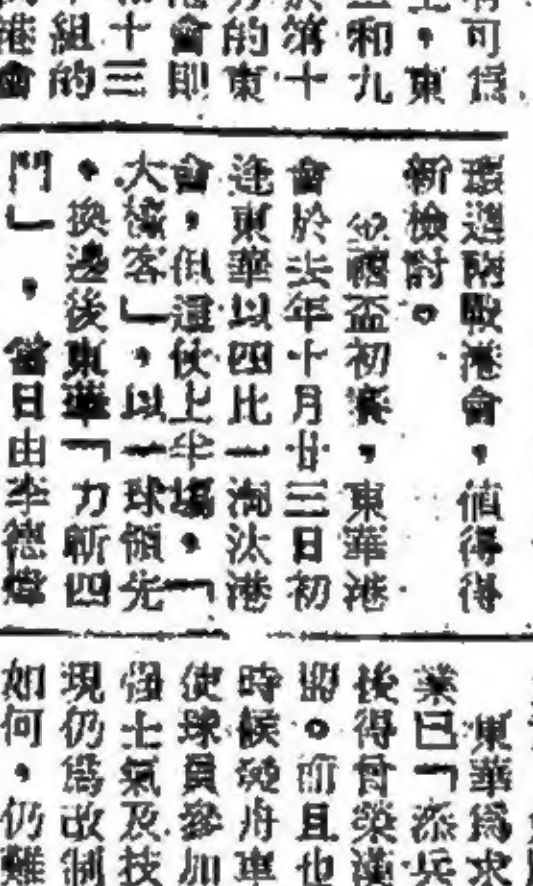 有可爲
，東
和九
落十
的東
會即
十三
組的
港會
環遇兩戰港會，值得
新檢討。
銀禧盃初賽，東華港
會於去年十月廿三日初
逢東華以四比一淘汰港
會，但這仗上半場，「
大條客」，以一球領先
，換邊後東華「力斬四
門」，當日由李德輝
東華爲求
業已「添兵
後得曾榮漢
。而且也
時候舟車
使球員參加
強士氣及技
現仍爲改制
如何，仍難